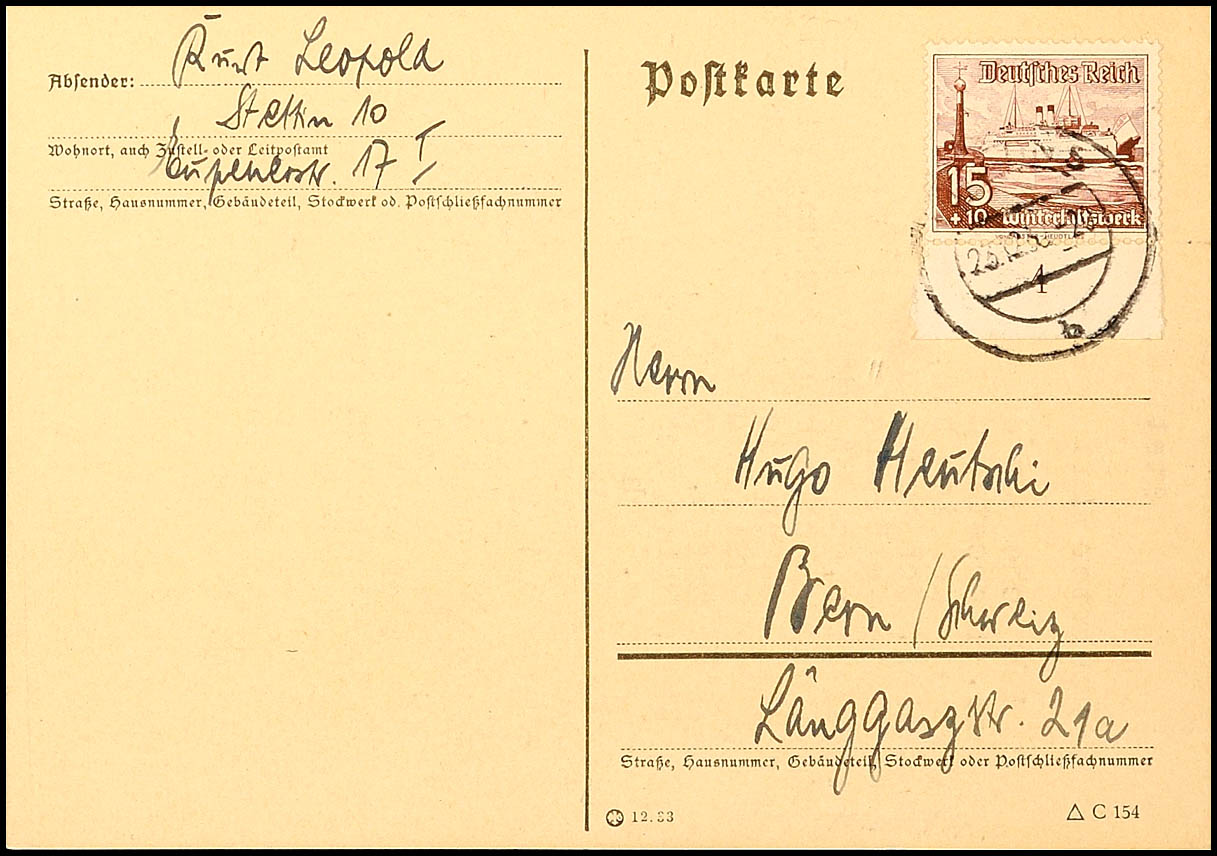 Absender: Kurt Leopold
Stettin 10
Wohnort, auch Zustell- oder Leitpostamt
17 I
Straße, Hausnummer, Gebäudeteil, Stockwerk od. Postschließfachnummer
Postkarte
Deutsches Reich
15
+ 10 Winterhilfswerk
4
b
Herrn
Hugo Heutschi
Bern / Schweiz
Länggaszstr. 21a
Straße, Hausnummer, Gebäudeteil, Stockwerk oder Postschließfachnummer
12.33
C 154